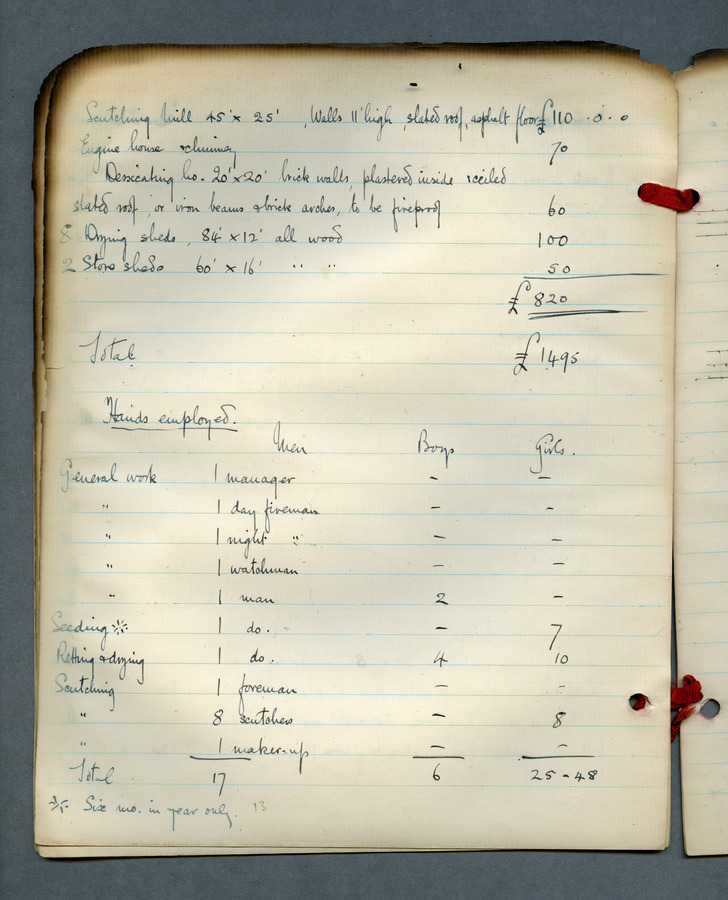 Scutching Mill 45' x 25' , Walls 11' high , slated roof, asphalt floor £110 . 0 . 0
Engine house & chimney 70
Dessicating ho. 20' x 20' brick walls, plastered inside & ceiled
slated roof, or iron beams & brick arches, to be fireproof 60
8 Drying sheds, 84' x 12' all wood 100
2 Store sheds 60' x 16' " " 50
£820
Total £1495
Hands employed.
Men Boys Girls.
General work 1 manager - -
" 1 day fireman - -
" 1 night " - -
" 1 watchman - -
" 1 man 2 -
Seeding * 1 do. - 7
Retting & drying 1 do. 4 10
Scutching 1 foreman - -
" 8 scutchers - 8
" 1 maker-up - -
Total 17 6 25 - 48
* Six mo. in year only. 13